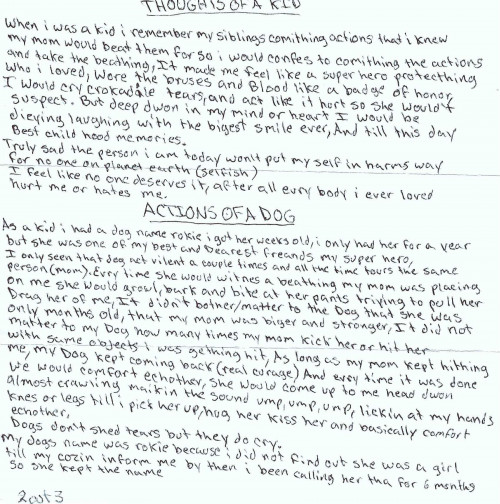 THOUGHTS OF A KID
When i was a kid i remember my siblings comithing actions that i knew
my mom would beat them for so i would confes to comithing the actions
and take the beathing, It made me feel like a super hero protecthing
who i loved, wore the bruses and Blood like a badge of honor,
I would cry crokadale tears, and act like it hort so she would't
suspect. But deep dwon in my mind or heart I would be
dieying laughing with the bigest smile ever, And till this day
Best child hood memories.
Truly sad the person i am today won't put my self in harms way
for no one on planet earth (selfish)
I feel like no one deserves it, after all evry body i ever loved
hurt me or hates me.
ACTIONS OF A DOG
As a kid i had a dog name rokie i got her weeks old, i only had her for a year
but she was one of my best and Dearest freands my super hero,
I only seen that dog act vilent a couple times and all the time tours the same
person (mom). Evry time she would witnes a beathing my mom was placing
on me she would growl, bark and bite at her pants triying to pull her
Drag her of me, It didn't bother/matter to the Dog that she was
only months old, that my mom was biger and stronger, It did not
matter to my Dog how many times my mom kick her or hit her
with same objects i was gething hit, As long as my mom kept hithing
me, my Dog kept coming back (real curage) And evry time it was done
we would comfort echother, she would come up to me head dwon
almost crawling maikin the sound ump, ump, unp, lickin at my hands
knes or legs till i pick her up, hug her kiss her and basically comfort
echother,
Dogs don't shed tears but they do cry.
My dogs name was rokie because i did not find out she was a girl
till my cozin inform me by then i been calling her tha for 6 months
so she kept the name
2 of 3